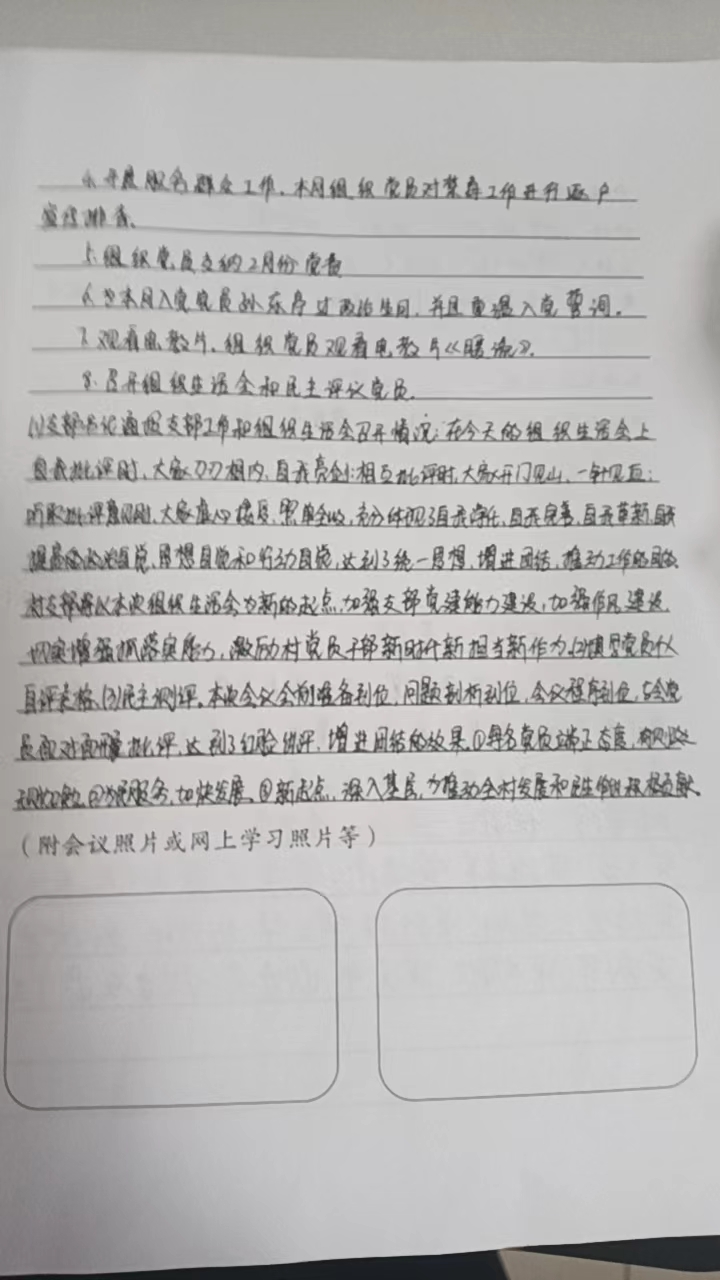 4.开展服务群众工作。本月组织党员对禁毒工作进行逐户
宣传排查。
5.组织党员交纳2月份党费
6.为本月入党党员孙东序过政治生日,并且重温入党誓词。
7.观看电教片。组织党员观看电教片《暖流》。
8.召开组织生活会和民主评议党员。
(1)支部书记通报支部工作和组织生活会召开情况:在今天的组织生活会上
自我批评时,大家刀刃相内、自我亮剑;相互批评时,大家开门见山、一针见血;
听取批评意见时,大家虚心接受、照单全收,充分体现了自我净化、自我完善、自我革新、自我
提高的政治自觉、思想自觉和行动自觉,达到了统一思想、增进团结、推动工作的目的。
村支部将以本次组织生活会为新的起点,加强支部党建能力建设,加强作风建设,
切实增强抓落实能力,激励村党员干部新时代新担当新作为。(2)填写党员个人
自评表格。(3)民主测评。本次会议会前准备到位,问题剖析到位,会议程序到位,与会党
员面对面开展批评,达到了红脸出汗、增进团结的效果。①每名党员立端正态度,
②为民服务,加快发展。③新起点,深入基层,为推动全村发展和民生作出积极贡献。
(附会议照片或网上学习照片等)